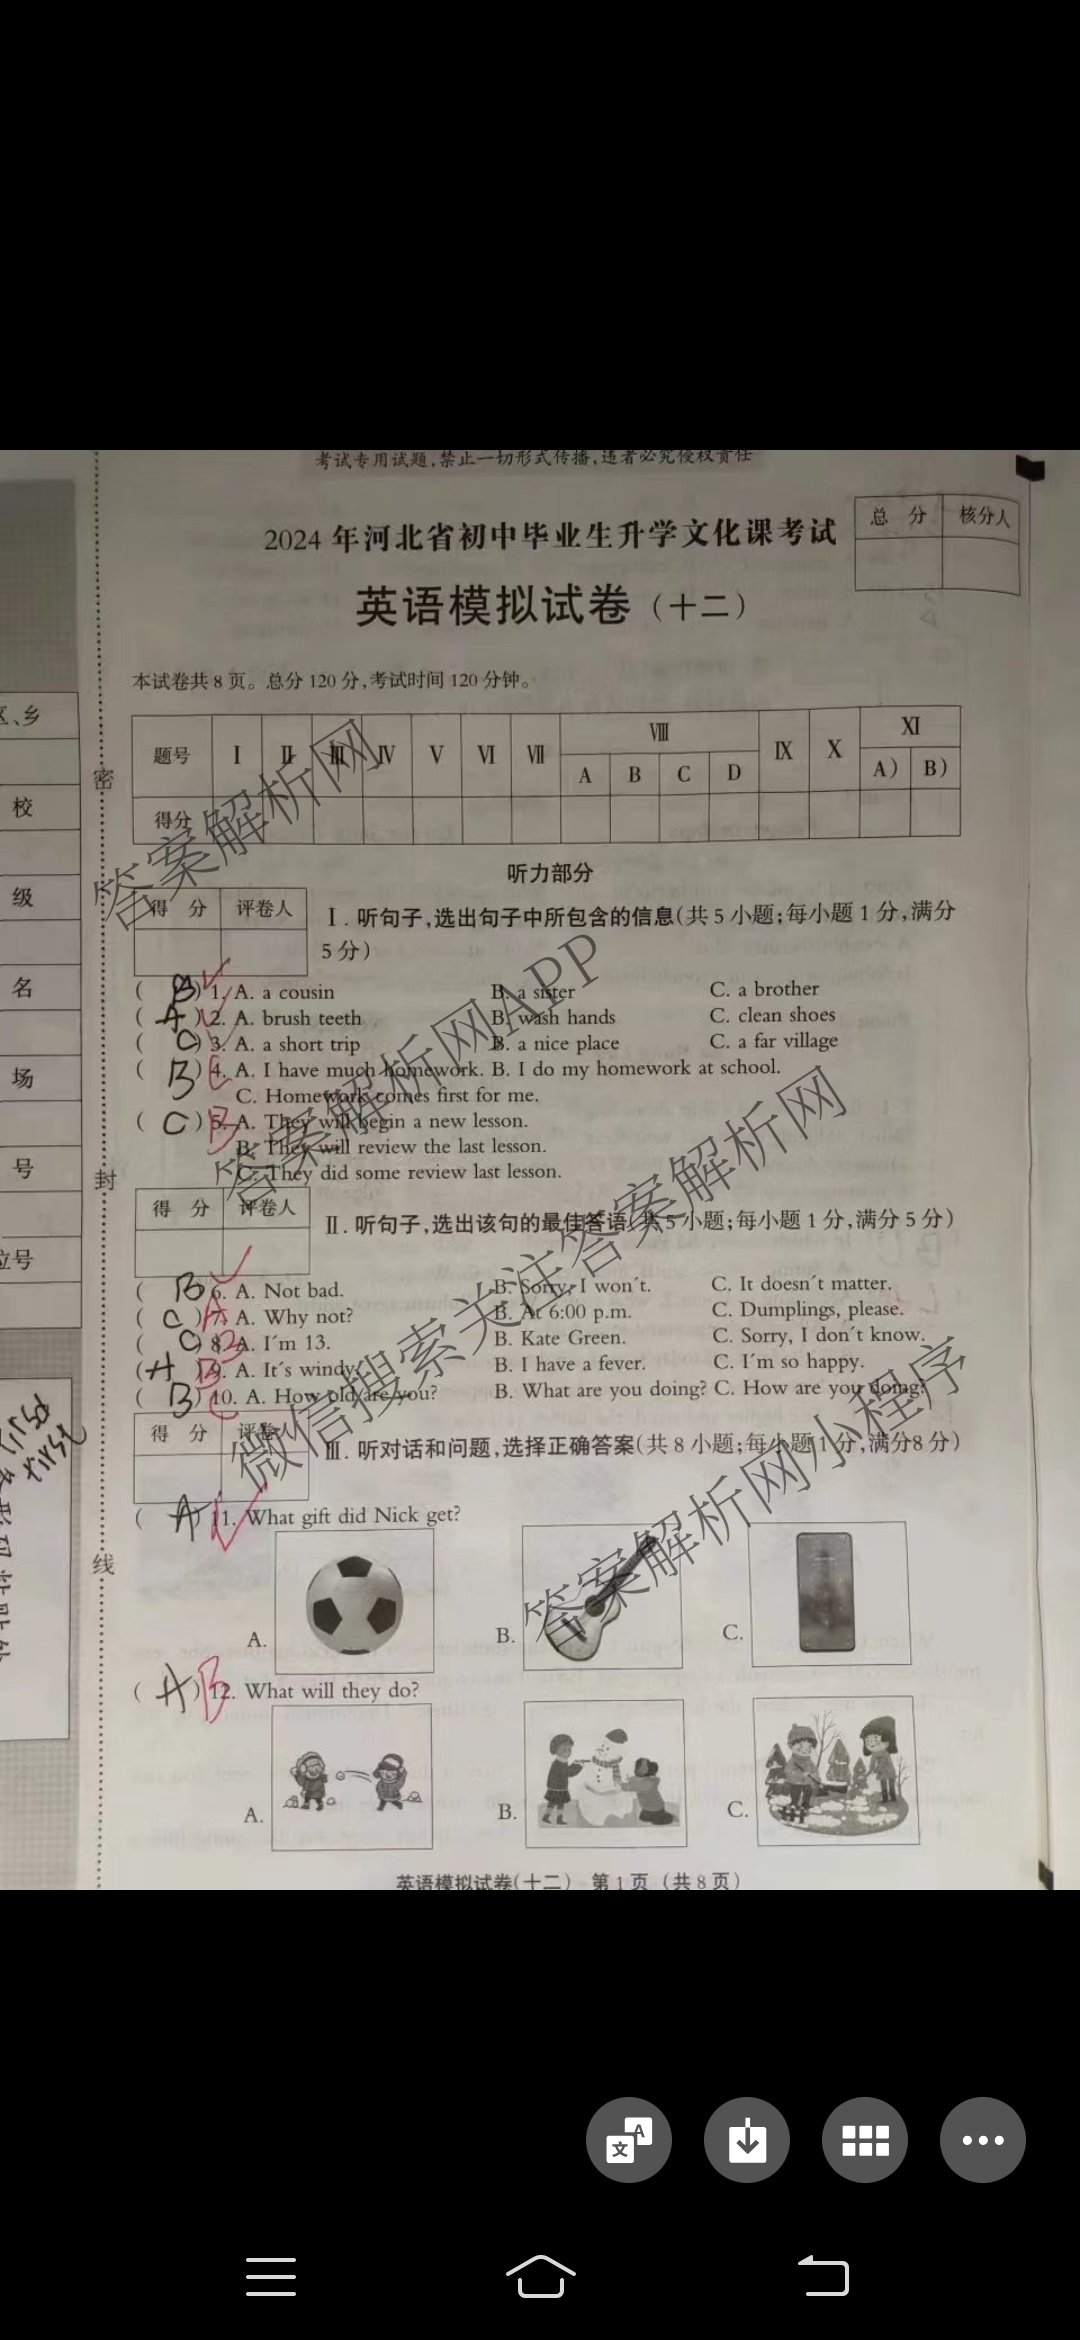 考试专用试题,禁止一切形式传播,违者必究侵权责任
2024年河北省初中毕业生升学文化课考试
总 分 核分人
英语模拟试卷(十二)
本试卷共8页。总分120分,考试时间120分钟。
题号 Ⅰ Ⅱ Ⅲ Ⅳ Ⅴ Ⅵ Ⅶ Ⅷ Ⅸ Ⅹ Ⅺ
A B C D A) B)
得分
听力部分
得 分 评卷人
Ⅰ.听句子,选出句子中所包含的信息(共5小题;每小题1分,满分
5分)
( B ) 1. A. a cousin B. a sister C. a brother
( A ) 2. A. brush teeth B. wash hands C. clean shoes
( C ) 3. A. a short trip B. a nice place C. a far village
( B ) C 4. A. I have much homework. B. I do my homework at school.
C. Homework comes first for me.
( C ) B 5. A. They will begin a new lesson.
B. They will review the last lesson.
C. They did some review last lesson.
得 分 评卷人
Ⅱ.听句子,选出该句的最佳答语(共5小题;每小题1分,满分5分)
( B ) 6. A. Not bad. B. Sorry, I won't. C. It doesn't matter.
( C ) A 7. A. Why not? B. At 6:00 p.m. C. Dumplings, please.
( C ) B 8. A. I'm 13. B. Kate Green. C. Sorry, I don't know.
( A ) B 9. A. It's windy. B. I have a fever. C. I'm so happy.
( B ) C 10. A. How old are you? B. What are you doing? C. How are you doing?
得 分 评卷人
Ⅲ.听对话和问题,选择正确答案(共8小题;每小题1分,满分8分)
( A ) 11. What gift did Nick get?
A. B. C.
( A ) B 12. What will they do?
A. B. C.
英语模拟试卷(十二) 第1页 (共8页)
区、乡
校
级
名
场
号
位号
密
封
线
答案解析网
答案解析网APP
微信搜索关注答案解析网
答案解析网小程序